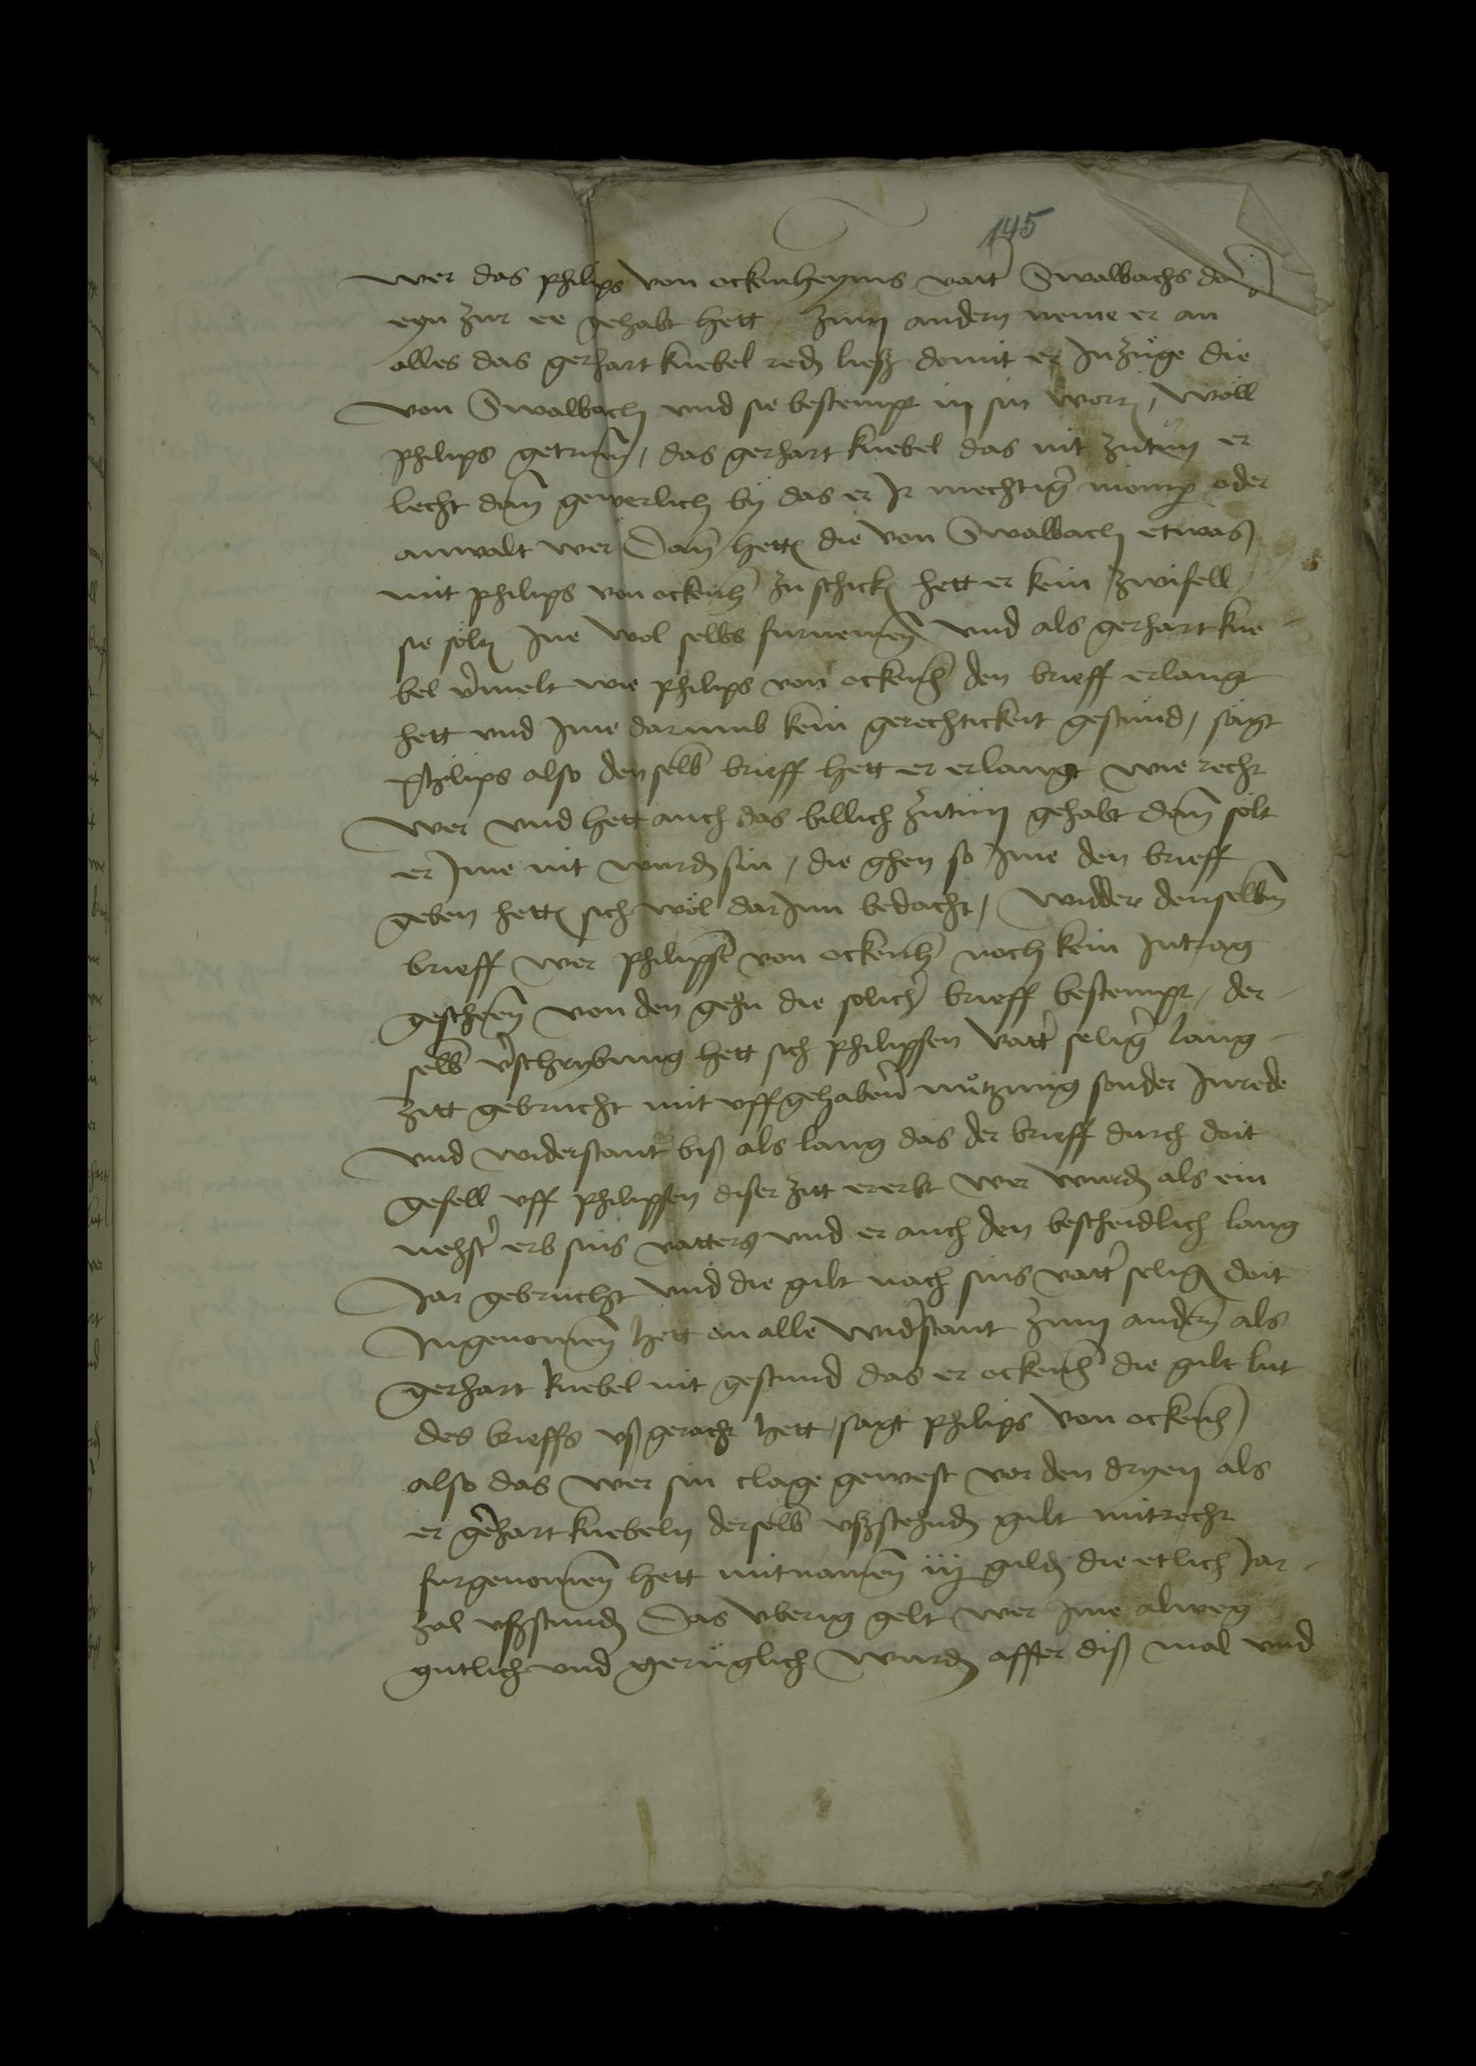 145
wer das philips von ockenheyms vatt(er) Swalbachs
eyn zur ee gehabt hett / zum andern neme er an
alles das gerhart knebel red(en) liesz domit er Inzüge die
von Swalbach und sie bestempt in sin wort / wöll
philips getruw(en) / das gerhart knebel das nit zutün er
lecht dan(n) gewerlich by das er Ir mechtig(er) momp(ar) oder
anwalt wer Dan(n) hett(en) die von Swalbach etwas
mit philips von ockenh(eym) zu schick(en) hett er kein zwifell
sie solt(en) Ine wol selbs furnem(en) Und als gerhart kne-
bel v(er)melt wie philips von ockenh(eym) den brieff erlangt
hett und Ime darumb kein gerechtickeit gestünd / sagt
philips also denselb(en) brieff hett er erlangt wie recht
wer und hett auch das billich zutün gehabt dan(n) solt
er Ime nit wurd(en) sin / die ghen so Ime den brieff
geben hett(en) sich wol dar Inn bedacht / widder denselb(en)
brieff wer philipss(en) von ockenh(eym) noch kein Intrag
gescheen von den gehn die solich(en) brieff bestempt / der-
selb(en) v(er)schrybung hett sich philipsen vatt(er) selig(er) lang-
zitt gebrucht mit uffgehaben(er) nützung sonder Inrede
und widerstant biß als lang das der brieff durch doit
gefell uff philipsen diser zitt ererbt wer wurd(en) als ein
nehst(er) erb sins vatters und er auch den bescheidlich lang
Jar gebrucht und die gült nach sins vatt(er) selig(en) doit
Ingenom(m)en hett on alle wid(er)stant zum andern als
gerhart knebel nit gestund das er ockenh(eym) die gilt lut
des brieffs ußgeracht hett / sagt philips von ockenh(eym)
also das wer sin clage gewest vor den dryen als
er g(er)hart knebeln derselb(en) ußstehnd(en) gult mitrecht
furgenom(m)en hett mitnam(en) iij guld(en) die etlich Jar-
zal ußstund(en) Das uberig gelt wer Ime alweg
gutlich und gerüglich wurd(en) affter diß mal und